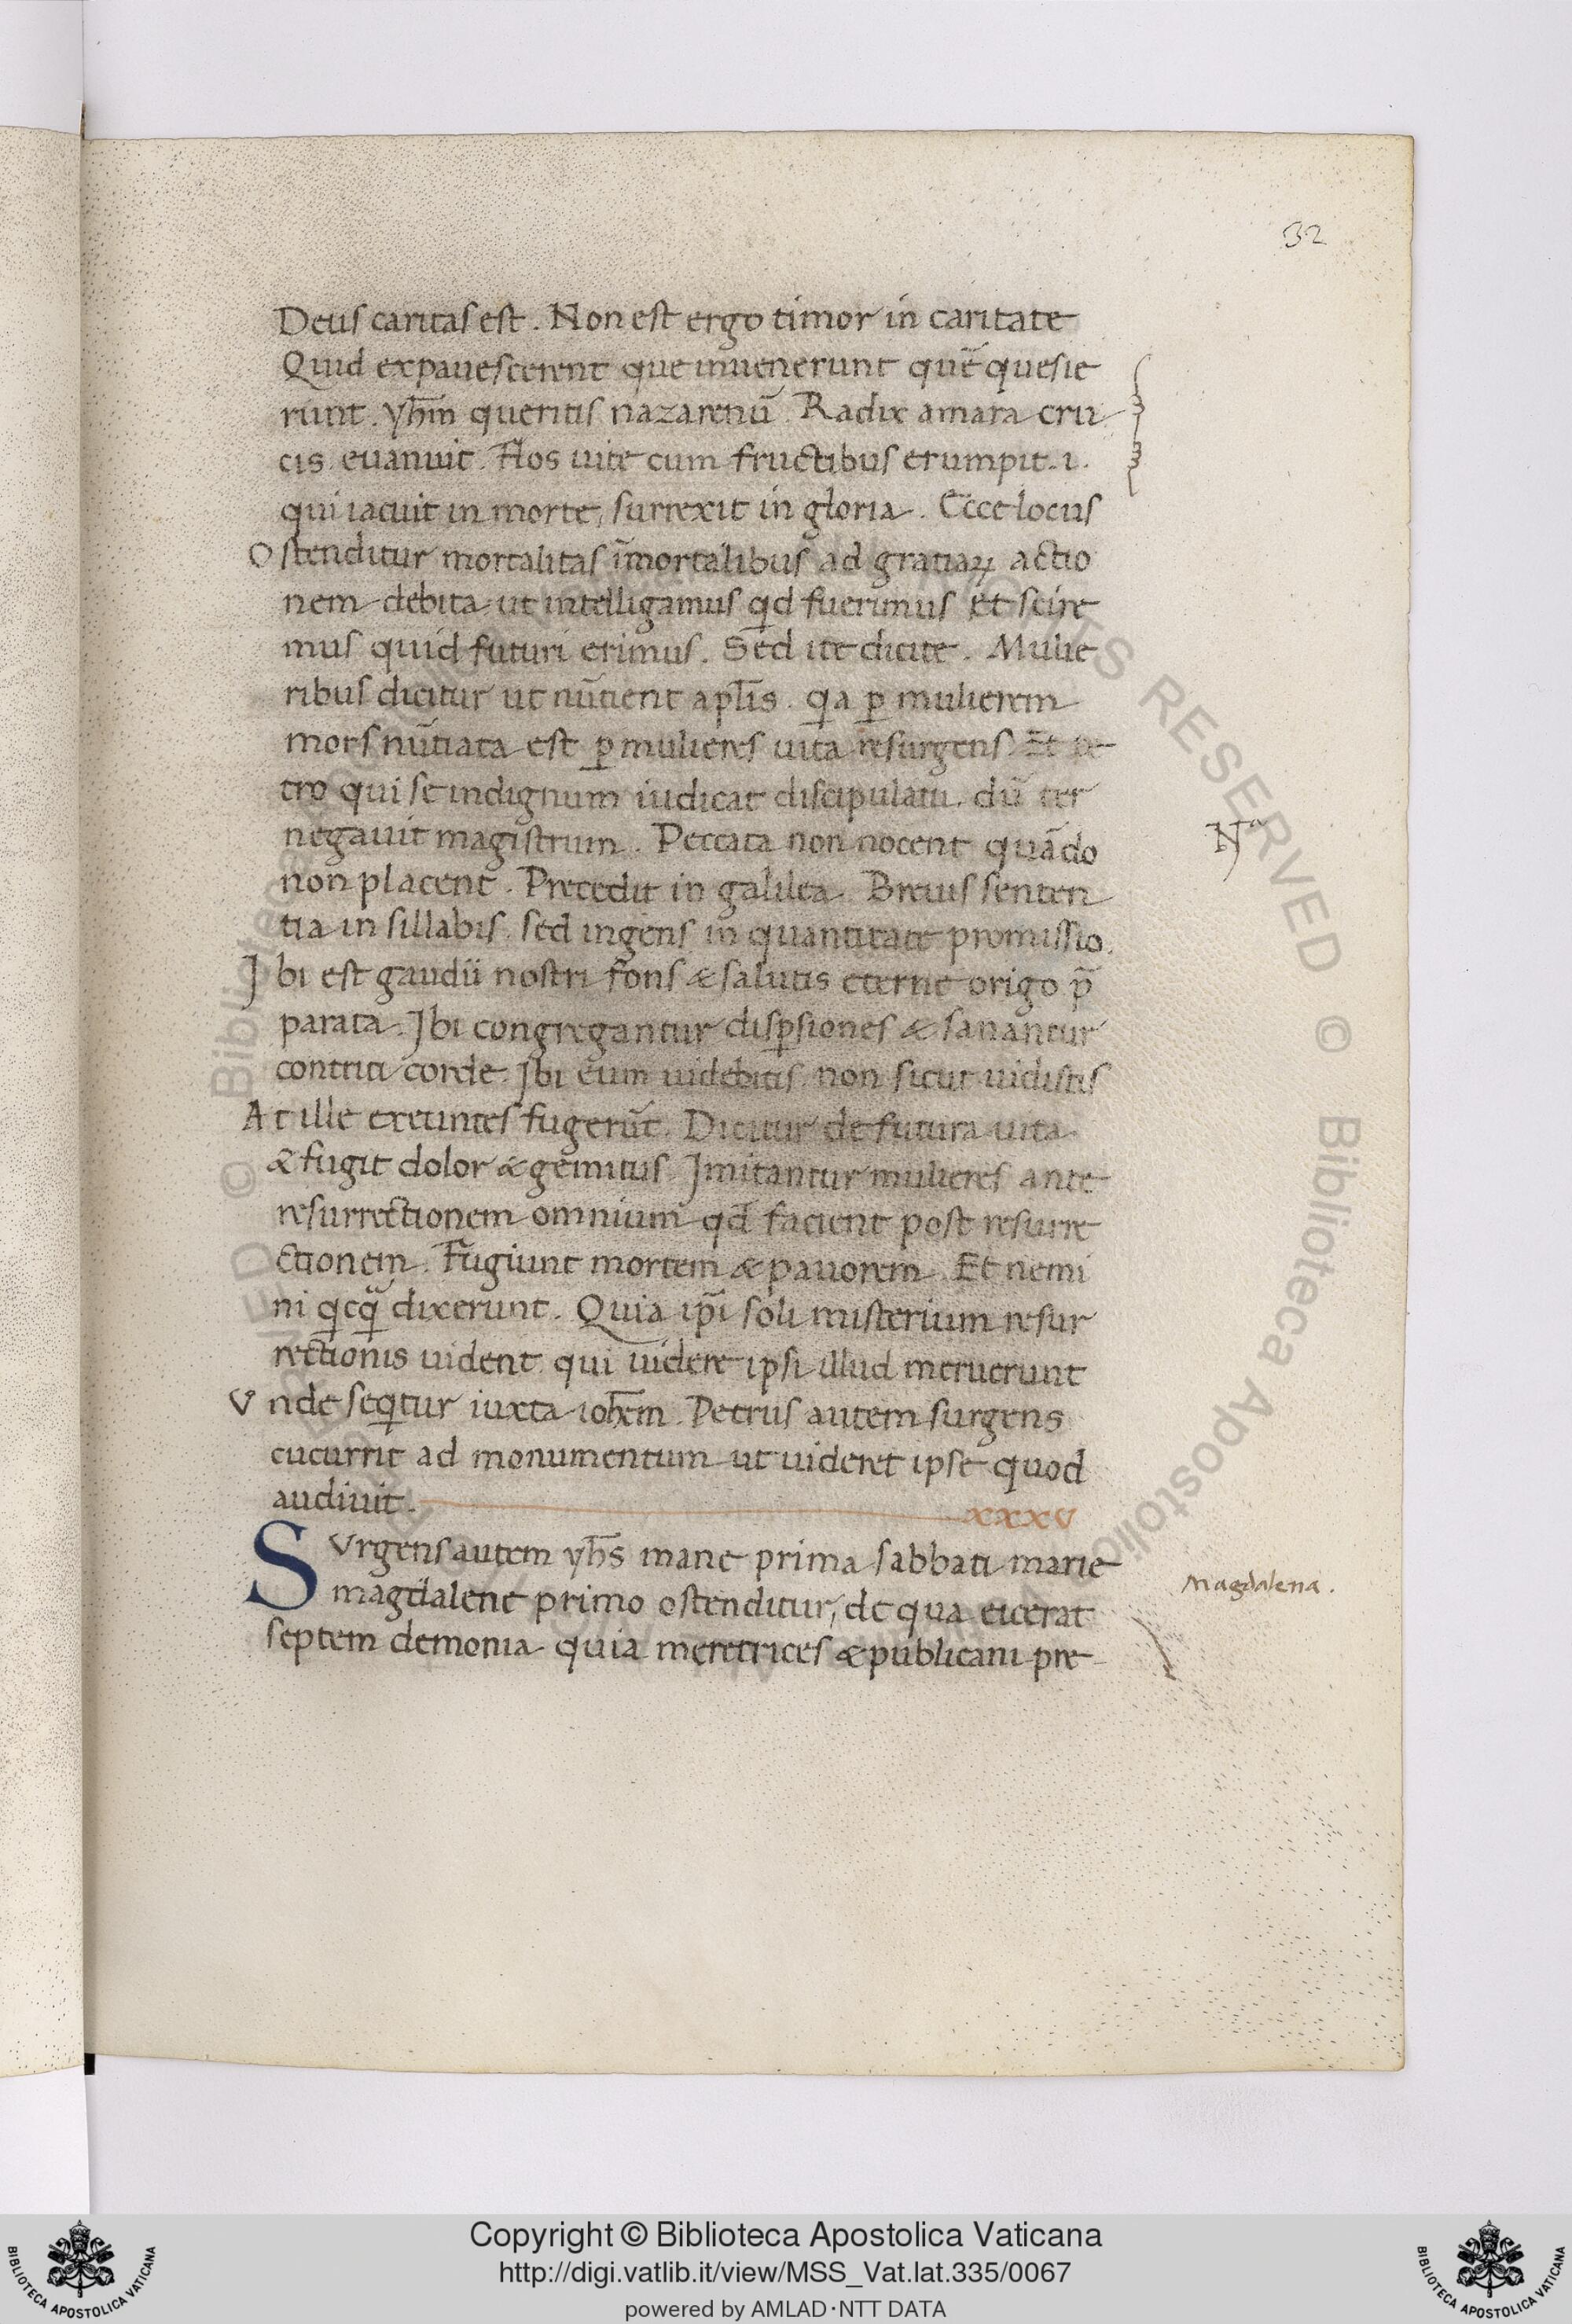 32
Deus caritas est. Non est ergo timor in caritate
Quid expauescerent que inuenerunt quē quesie
runt. yh̄m queritis nazarenū. Radix amara cru
cis euanuit. Flos uite cum fructibus erumpit. i.
qui iacuit in morte, surrexit in gloria. Ecce locus
Ostenditur mortalitas īmortalibus ad gratiaꝝ actio
nem debita, ut intelligamus qd fuerimus et scire
mus quid futuri erimus. Sed ite dicite. Mulie
ribus dicitur ut nūtient apl̄is. qa ꝑ mulierem
mors nūtiata est ꝑ mulieres uita resurgens. Et pe
tro qui se indignum iudicat discipulatu. dū ter
negauit magistrum. Peccata non nocent quādo
Nᵃ
non placent. Precedit in galilea. Breuis senten
tia in sillabis. sed ingens in quantitate promissio.
Jbi est gaudii nostri fons & salutis eterne origo p̄
parata. Jbi congregantur disꝑsiones & sanantur
contriti corde. Jbi eum uidebitis. non sicut uidistis
At ille exeuntes fugerūt. Dicitur de futura uita
& fugit dolor & gemitus. Jmitantur mulieres ante
resurrectionem omnium qd̄ facient post resurre
ctionem. Fugiunt mortem & pauorem. Et nemi
ni qcqᷓ dixerunt. Quia ip̄i soli misterium resur
rectionis uident. qui uidere ipsi illud meruerunt
Vnde seqtur iuxta ioh̄em. Petrus autem surgens
cucurrit ad monumentum ut uideret ipse quod
audiuit. xxxv
SVrgens autem yh̄s mane prima sabbati marie
magdalene primo ostenditur, de qua eicerat
Magdalena.
septem demonia quia meretrices & publicani pre-
© Biblioteca Apostolica
RESERVED
Copyright © Biblioteca Apostolica Vaticana
http://digi.vatlib.it/view/MSS_Vat.lat.335/0067
powered by AMLAD·NTT DATA
BIBLIOTECA APOSTOLICA VATICANA
BIBLIOTECA APOSTOLICA VATICANA